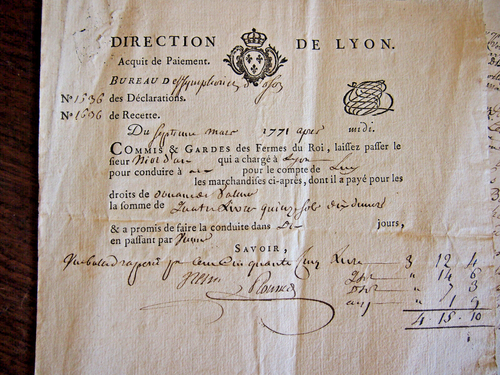 DIRECTION DE LYON.
Acquit de Paiement.
BUREAU De St Symphorien d'ozon
No 1536 des Déclarations.
No 1536 de Recette.
Du Septieme mars 1771 apres midi.
COMMIS & GARDES des Fermes du Roi, laissez passer le
sieur qui a chargé à Lyon
pour conduire à pour le compte de Luy
les marchandises ci-après, dont il a payé pour les
droits de Douane de Valence
la somme de Quatre Livres quinze sols dix deniers
& a promis de faire la conduite dans jours,
en passant par
SAVOIR,
Un balot cent Cinquante Cinq Livres 3 12 4
14 6
7 3
1 9
4 - 15 - 10